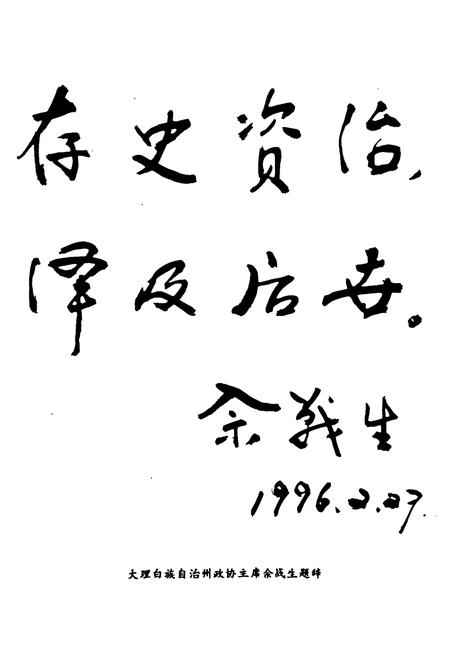 存史資治，
泽及后世。
余战生
1996.2.27.
大理白族自治州政协主席余战生题辞